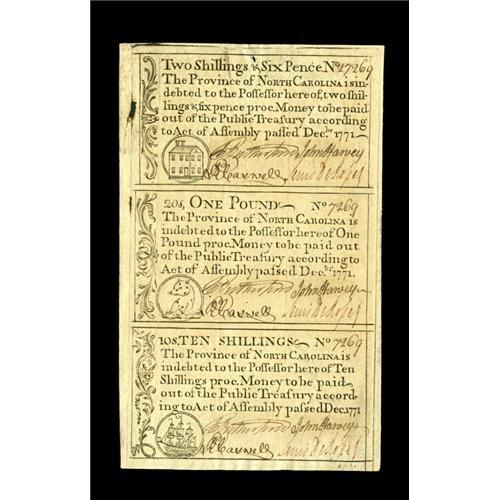 Two Shillings & Six Pence. No 7269
The Province of NORTH CAROLINA is in-
debted to the Possessor hereof, two shil-
lings & six pence proc. Money to be paid
out of the Public Treasury according
to Act of Assembly passed Decbr. 1771.
Rutherfurd John Harvey
R Caswell Lewis De Rosset
20s, ONE POUND No 7269
The Province of NORTH CAROLINA is
indebted to the Possessor here of One
Pound proc. Money to be paid out
of the Public Treasury according to
Act of Assembly passed Decbr. 1771.
Rutherfurd John Harvey
R Caswell Lewis De Rosset
10s, TEN SHILLINGS No 7269
The Province of NORTH CAROLINA is
indebted to the Possessor here of Ten
Shillings proc. Money to be paid
out of the Public Treasury accord-
ing to Act of Assembly passed Dec. 1771
Rutherfurd John Harvey
R Caswell Lewis De Rosset